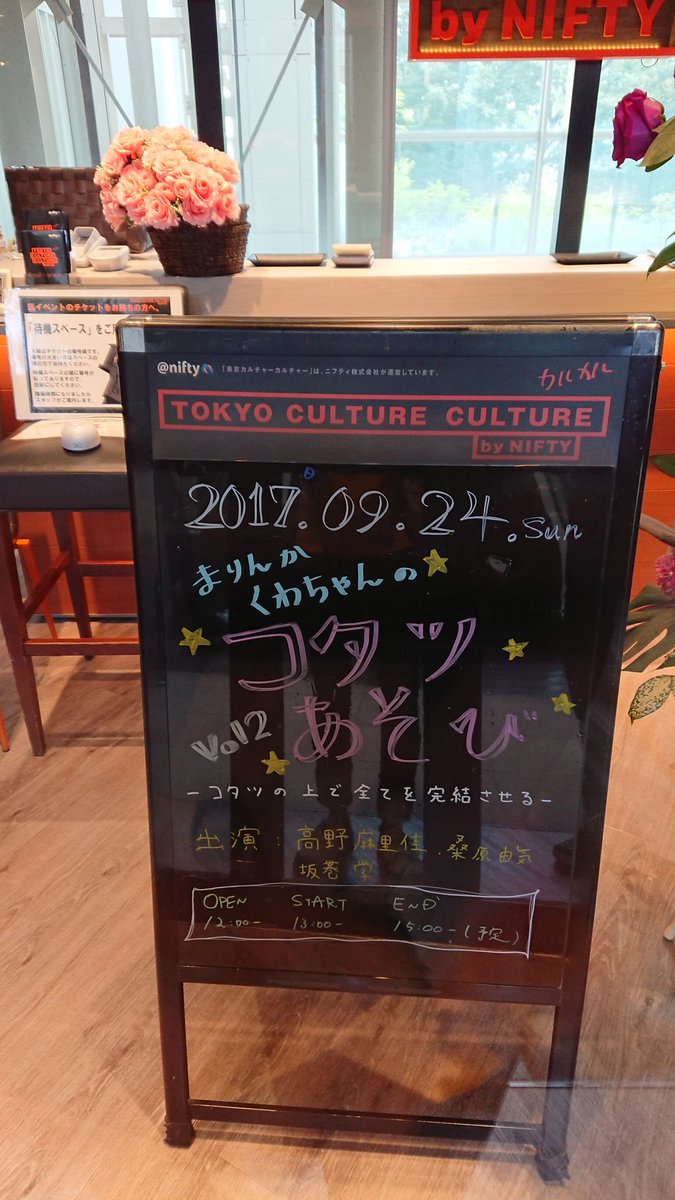 by NIFTY
当イベントのチケットをお持ちの方へ。
「待機スペース」をご
@nifty 「東京カルチャーカルチャー」は、ニフティ株式会社が運営しています。
カルカル
TOKYO CULTURE CULTURE
by NIFTY
2017.09.24.sun
まりんか
くわちゃんの
コタツ
Vol2 あそび
-コタツの上で全てを完結させる-
出演:高野麻里佳.桑原由気
坂巻学
OPEN START END
12:00- 13:00- 15:00-(予定)